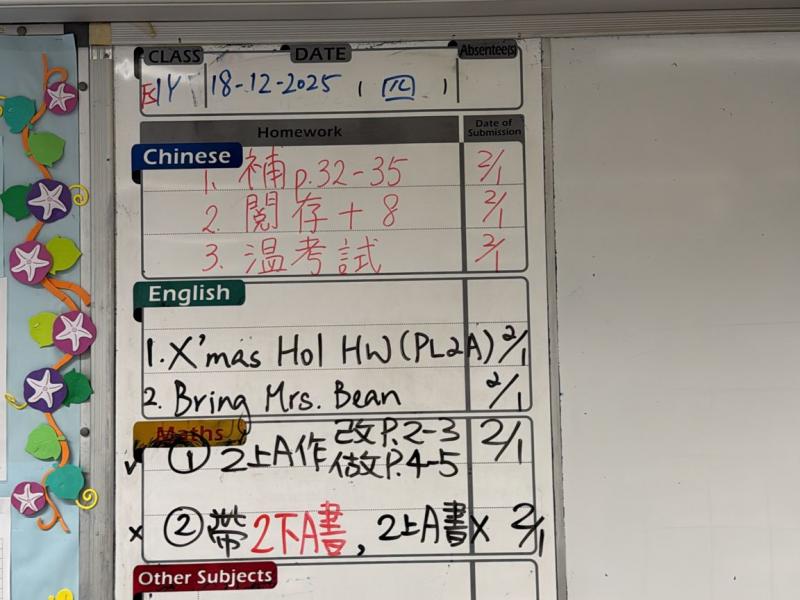 CLASS DATE Absentee(s)
1Y 18-12-2025 (四)
Homework Date of Submission
Chinese
1. 補 p.32-35 2/1
2. 閱存+8 2/1
3. 温考試 2/1
English
1. X'mas Hol HW (PL2A) 2/1
2. Bring Mrs. Bean 2/1
Maths
✓ ① 2上A作 改P.2-3 2/1
做P.4-5
x ② 帶2下A書, 2上A書X 2/1
Other Subjects